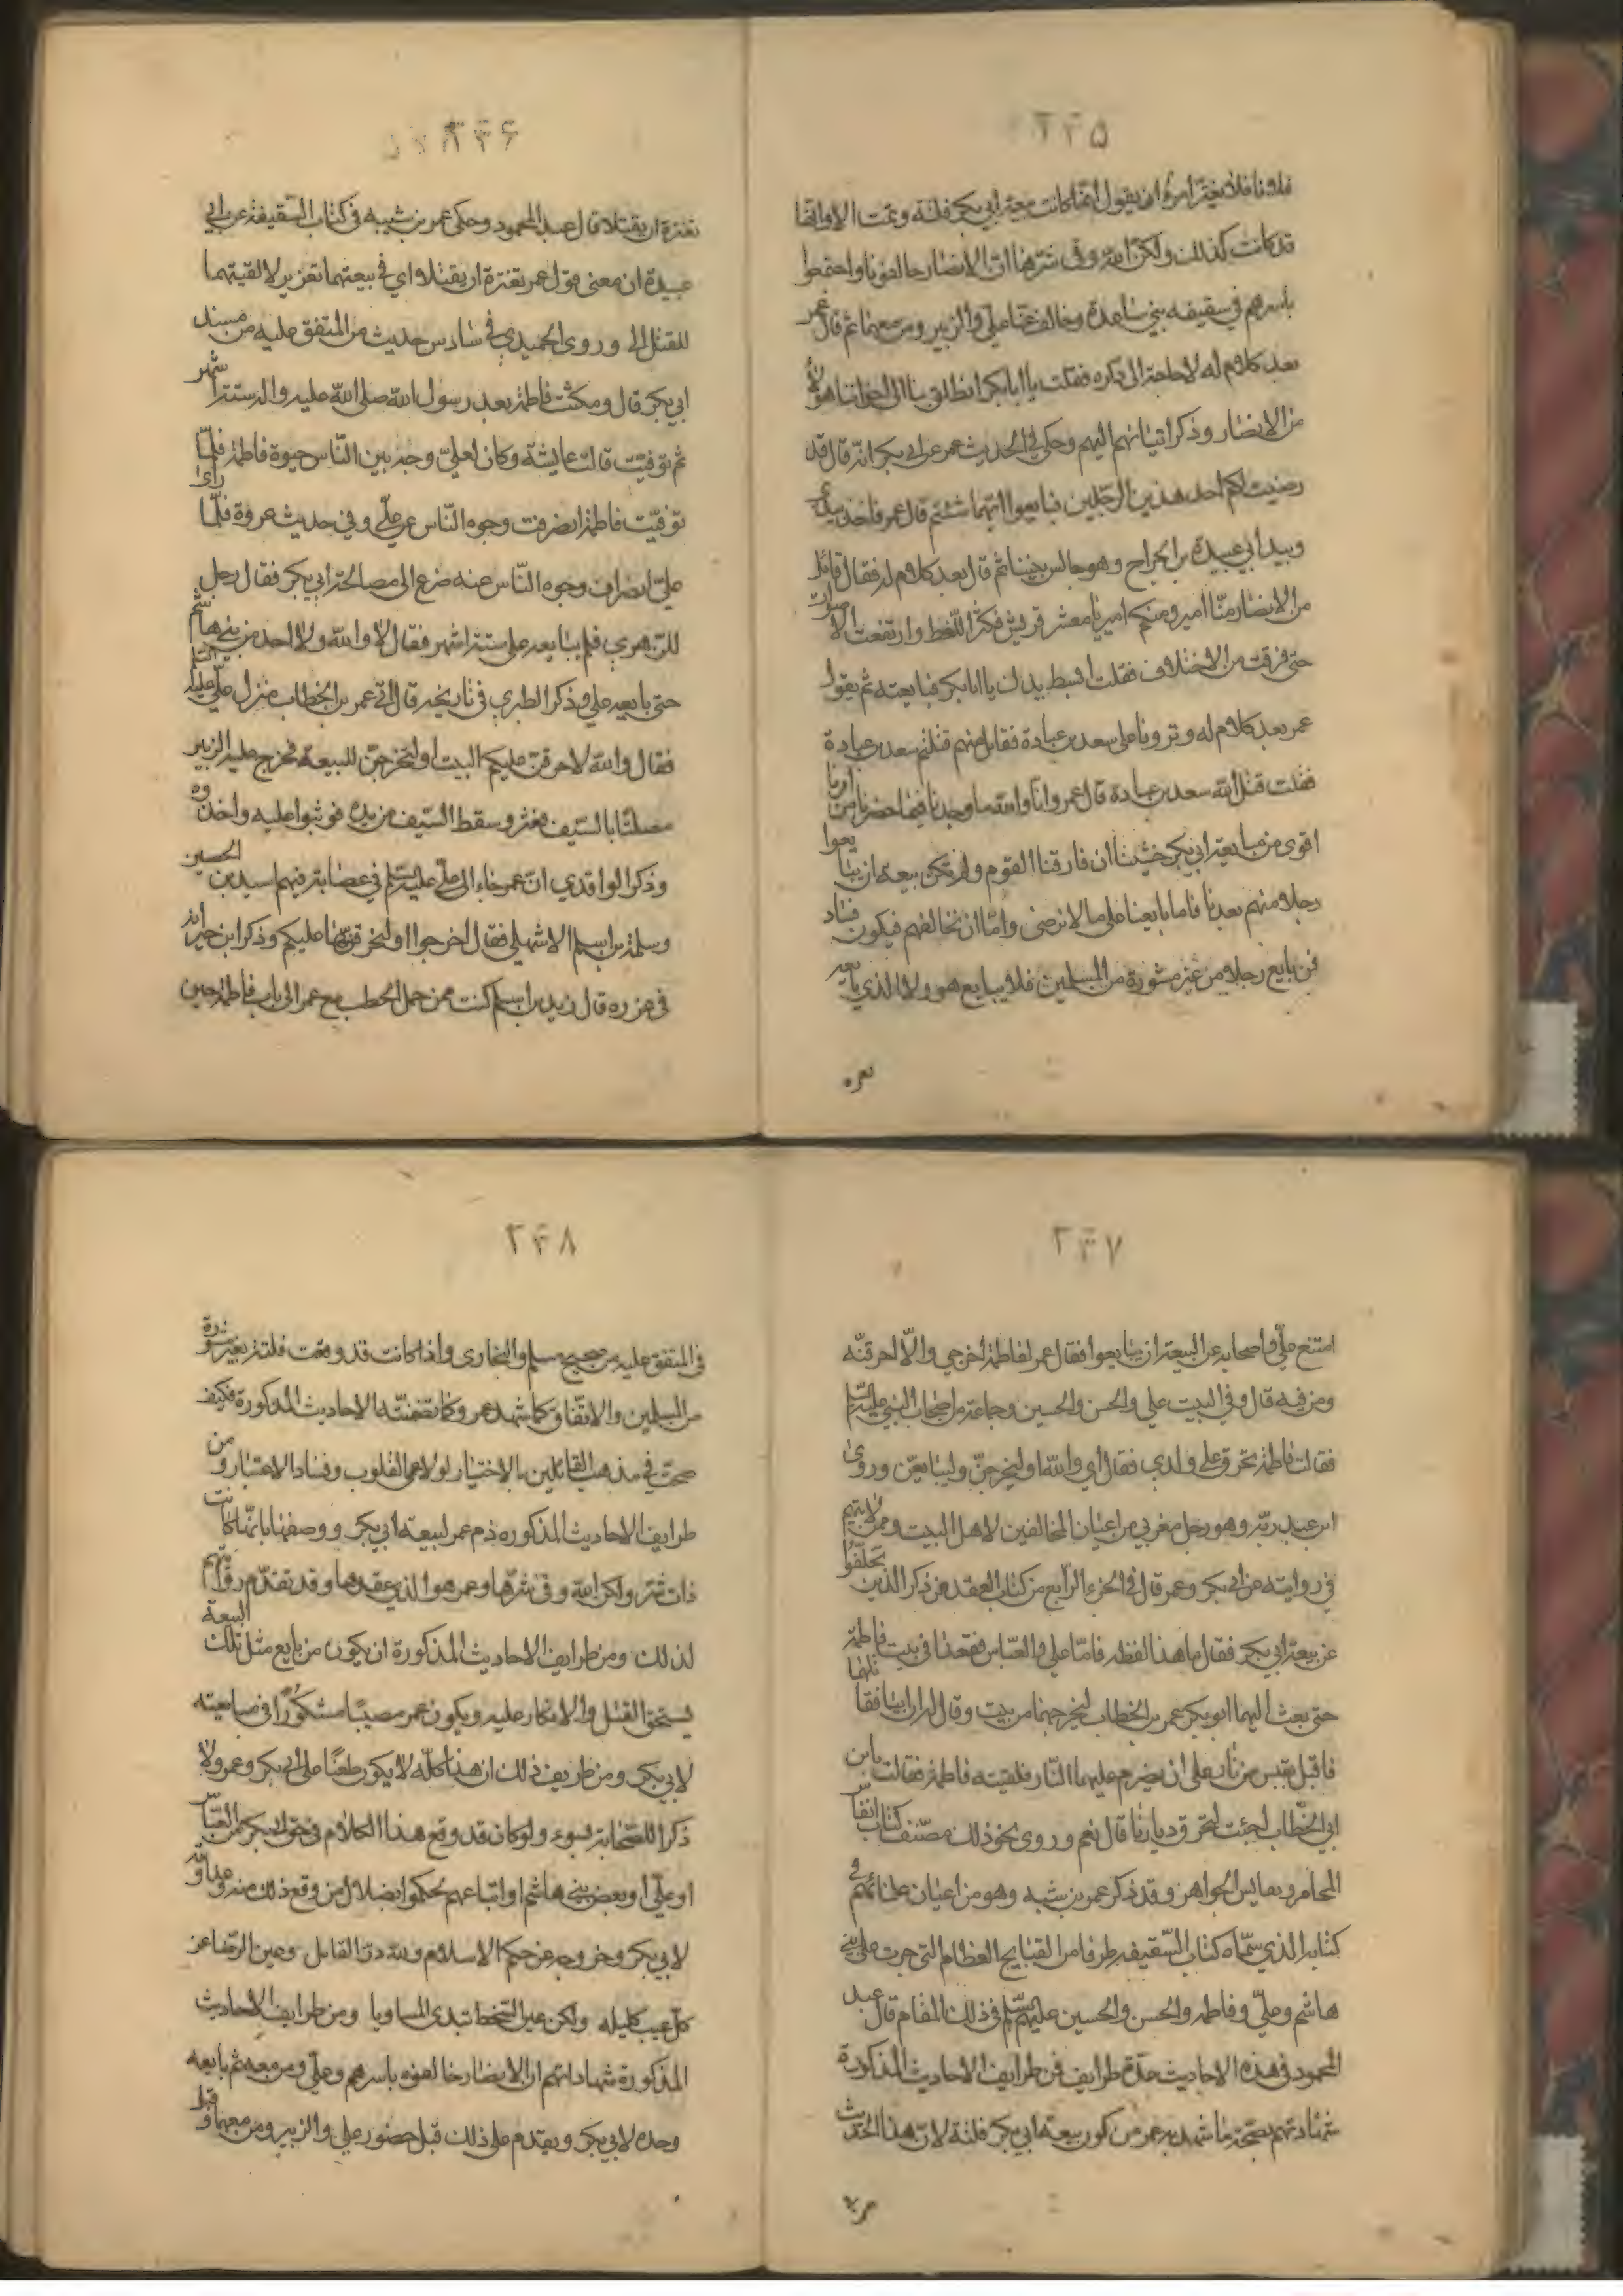 ٢٣٥
فلانا فلا يغتر امرؤ ان يقول انما كانت بيعة ابي بكر فلتة وتمت الا وانها
قد كانت كذلك ولكن الله وقى شرها ان الانصار خالفونا واجتمعوا
باسرهم في سقيفه بني ساعدة وخالف عنا علي والزبير ومن معهما ثم قال عمر
بعد كلام له لا حاجة الى ذكره فقلت يا ابا بكر انطلق بنا الى اخواننا هؤلاء
من الانصار وذكر اتيانهم اليهم وحكى في الحديث عمر عن ابي بكر انه قال قد
رضيت لكم احد هذين الرجلين فبايعوا ايهما شئتم قال عمر فاخذ بيدي
وبيد ابي عبيدة بن الجراح وهو جالس بيننا ثم قال بعد كلام له فقال قائل
من الانصار منا امير ومنكم امير يا معشر قريش فكثر اللغط وارتفعت الاصوات
حتى فرقت من الاختلاف فقلت ابسط يدك يا ابا بكر فبايعته ثم يقول
عمر بعد كلام له ونزونا على سعد بن عبادة فقال منهم قتلتم سعد بن عبادة
فقلت قتل الله سعد بن عبادة قال عمر وانا والله ما وجدنا فيما حضرنا من امرنا
اقوى من مبايعة ابي بكر خشينا ان فارقنا القوم ولم تكن بيعه ان يبايعوا
رجلا منهم بعدنا فاما بايعنا على ما لا نرضى واما ان نخالفهم فيكون فساد
فمن بايع رجلا من غير مشورة من المسلمين فلا يبايع هو ولا الذي بايعه
تغره
٢٣٦
تغرة ان يقتلا قال عبد المحمود وحكى عمر بن شبيه في كتاب السقيفة عن ابي
عبيدة ان معنى قول عمر تغرة ان يقتلا اي في بيعتهما تغرير لالقيتهما
للقتل الى وروى الحميدي في سادس حديث من المتفق عليه من مسند
ابي بكر قال ومكثت فاطمة بعد رسول الله صلى الله عليه واله ستة اشهر
ثم توفيت قالت عايشة وكان لعلي وجه بين الناس حيوة فاطمة فلما
توفيت فاطمة انصرفت وجوه الناس عن علي وفي حديث عروة فلما راى
علي انصراف وجوه الناس عنه ضرع الى مصالحة ابي بكر فقال رجل
للزهري فلم يبايعه علي ستة اشهر فقال لا والله ولا احد من بني هاشم
حتى بايعه علي وذكر الطبري في تاريخه قال اتى عمر بن الخطاب منزل علي عليه السلم
فقال والله لاحرقن عليكم البيت او لتخرجن للبيعة فخرج عليه الزبير
مصلتا بالسيف فعثر وسقط السيف من يده فوثبوا عليه واخذوه
وذكر الواقدي ان عمر جاء الى علي عليه السلم في عصابة فيهم اسيد بن الحصين
وسلمة بن اسلم الاشهلي فقال اخرجوا او لنحرقنها عليكم وذكر ابن خيرانه
في غرره قال زيد بن اسلم كنت ممن حمل الحطب مع عمر الى باب فاطمة حين
٢٣٧
امتنع علي واصحابه عن البيعة ان يبايعوا فقال عمر لفاطمة اخرجي والا احرقته
ومن فيه قال وفي البيت علي والحسن والحسين وجماعة من اصحاب النبي عليه السلم
فقالت فاطمة تحرق على ولدي فقال اي والله او ليخرجن وليبايعن وروى
ابن عبد ربه وهو رجل مغربي من اعيان المخالفين لاهل البيت وممن لا يتهم
في روايته عن ابي بكر وعمر قال في الجزء الرابع من كتاب العقد عن ذكر الذين تخلفوا
عن بيعة ابي بكر فقال ما هذا لفظه فاما علي والعباس فقعدا في بيت فاطمة
حتى بعث اليهما ابو بكر عمر بن الخطاب ليخرجهما من بيت وقال له ان ابيا فقاتلهما
فاقبل بقبس من نار على ان يضرم عليهما النار فلقيته فاطمة فقالت يا بن
ابي الخطاب اجئت لتحرق ديارنا قال نعم وروى نحو ذلك مصنف كتاب انفاس
المحامر ونفايس الجواهر وقد ذكر عمر بن شبه وهو من اعيان علمائهم في
كتابه الذي سماه كتاب السقيفه طرفا من القبايح العظام التي جرت على بني
هاشم وعلي وفاطمه والحسن والحسين عليهم السلم في ذلك المقام قال عبد
المحمود في هذه الاحاديث عدة طرايف فمن طرايف الاحاديث المذكورة
شهادتهم بصحة ما شهد به عمر من كون بيعة ابي بكر فلتة لان هذا الحديث
٢٣٨
في المتفق عليه من صحيح مسلم والبخارى واذا كانت قد وقعت فلتة بغير مشورة
من المسلمين والاتفاق كما شهد عمر وكما تضمنته الاحاديث المذكورة فكيف
صحت في مذهب القائلين بالاختيار لولا عمى القلوب وفساد الاعتبار ومن
طرايف الاحاديث المذكوره ذم عمر لبيعة ابي بكر ووصفها بانها كانت
ذات شر ولكن الله وقى شرها وعمر هو الذي عقدها وقد تقدم روايتهم
لذلك ومن طرايف الاحاديث المذكورة ان يكون من بايع مثل تلك البيعة
يستحق القتل والانكار عليه ويكون عمر مصيبا مشكورا في مبايعته
لابي بكر ومن طريف ذلك ان هذا كله لا يكون طعنا على ابي بكر وعمر ولا
ذكرا للصحابة بسوء ولو كان قد وقع هذا الكلام في حق ابي بكر من العباس
او علي او بعض بني هاشم او اتباعهم لحكموا بضلال من وقع ذلك منه وعداوته
لابي بكر وخروجه عن حكم الاسلام ولله در القائل وعين الرضا عن
كل عيب كليله ولكن عين السخط تبدى المساويا ومن طرايف الاحاديث
المذكورة شهاداتهم ان الانصار خالفوه باسرهم وعلي ومن معه ثم بايعه
وحده لابي بكر ويقدم على ذلك قبل حضور علي والزبير ومن معهما وقبل